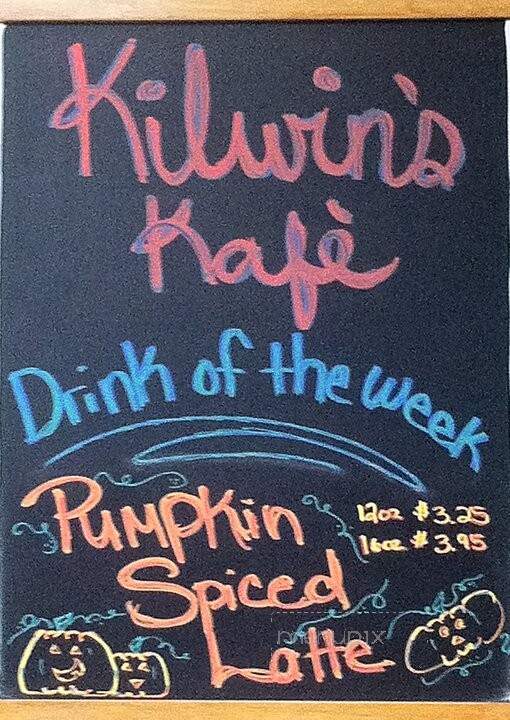 Kilwin's
Kafè
Drink of the week
Pumpkin
12oz $3.25
16oz $3.95
Spiced
Latte
menupix